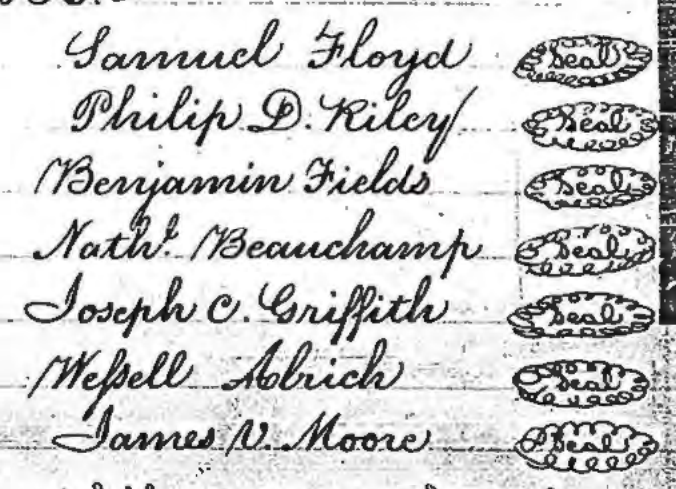 Samuel Floyd Seal
Philip D. Riley Seal
Benjamin Fields Seal
Nathl. Beauchamp Seal
Joseph C. Griffith Seal
Weſsell Alrich Seal
James V. Moore Seal